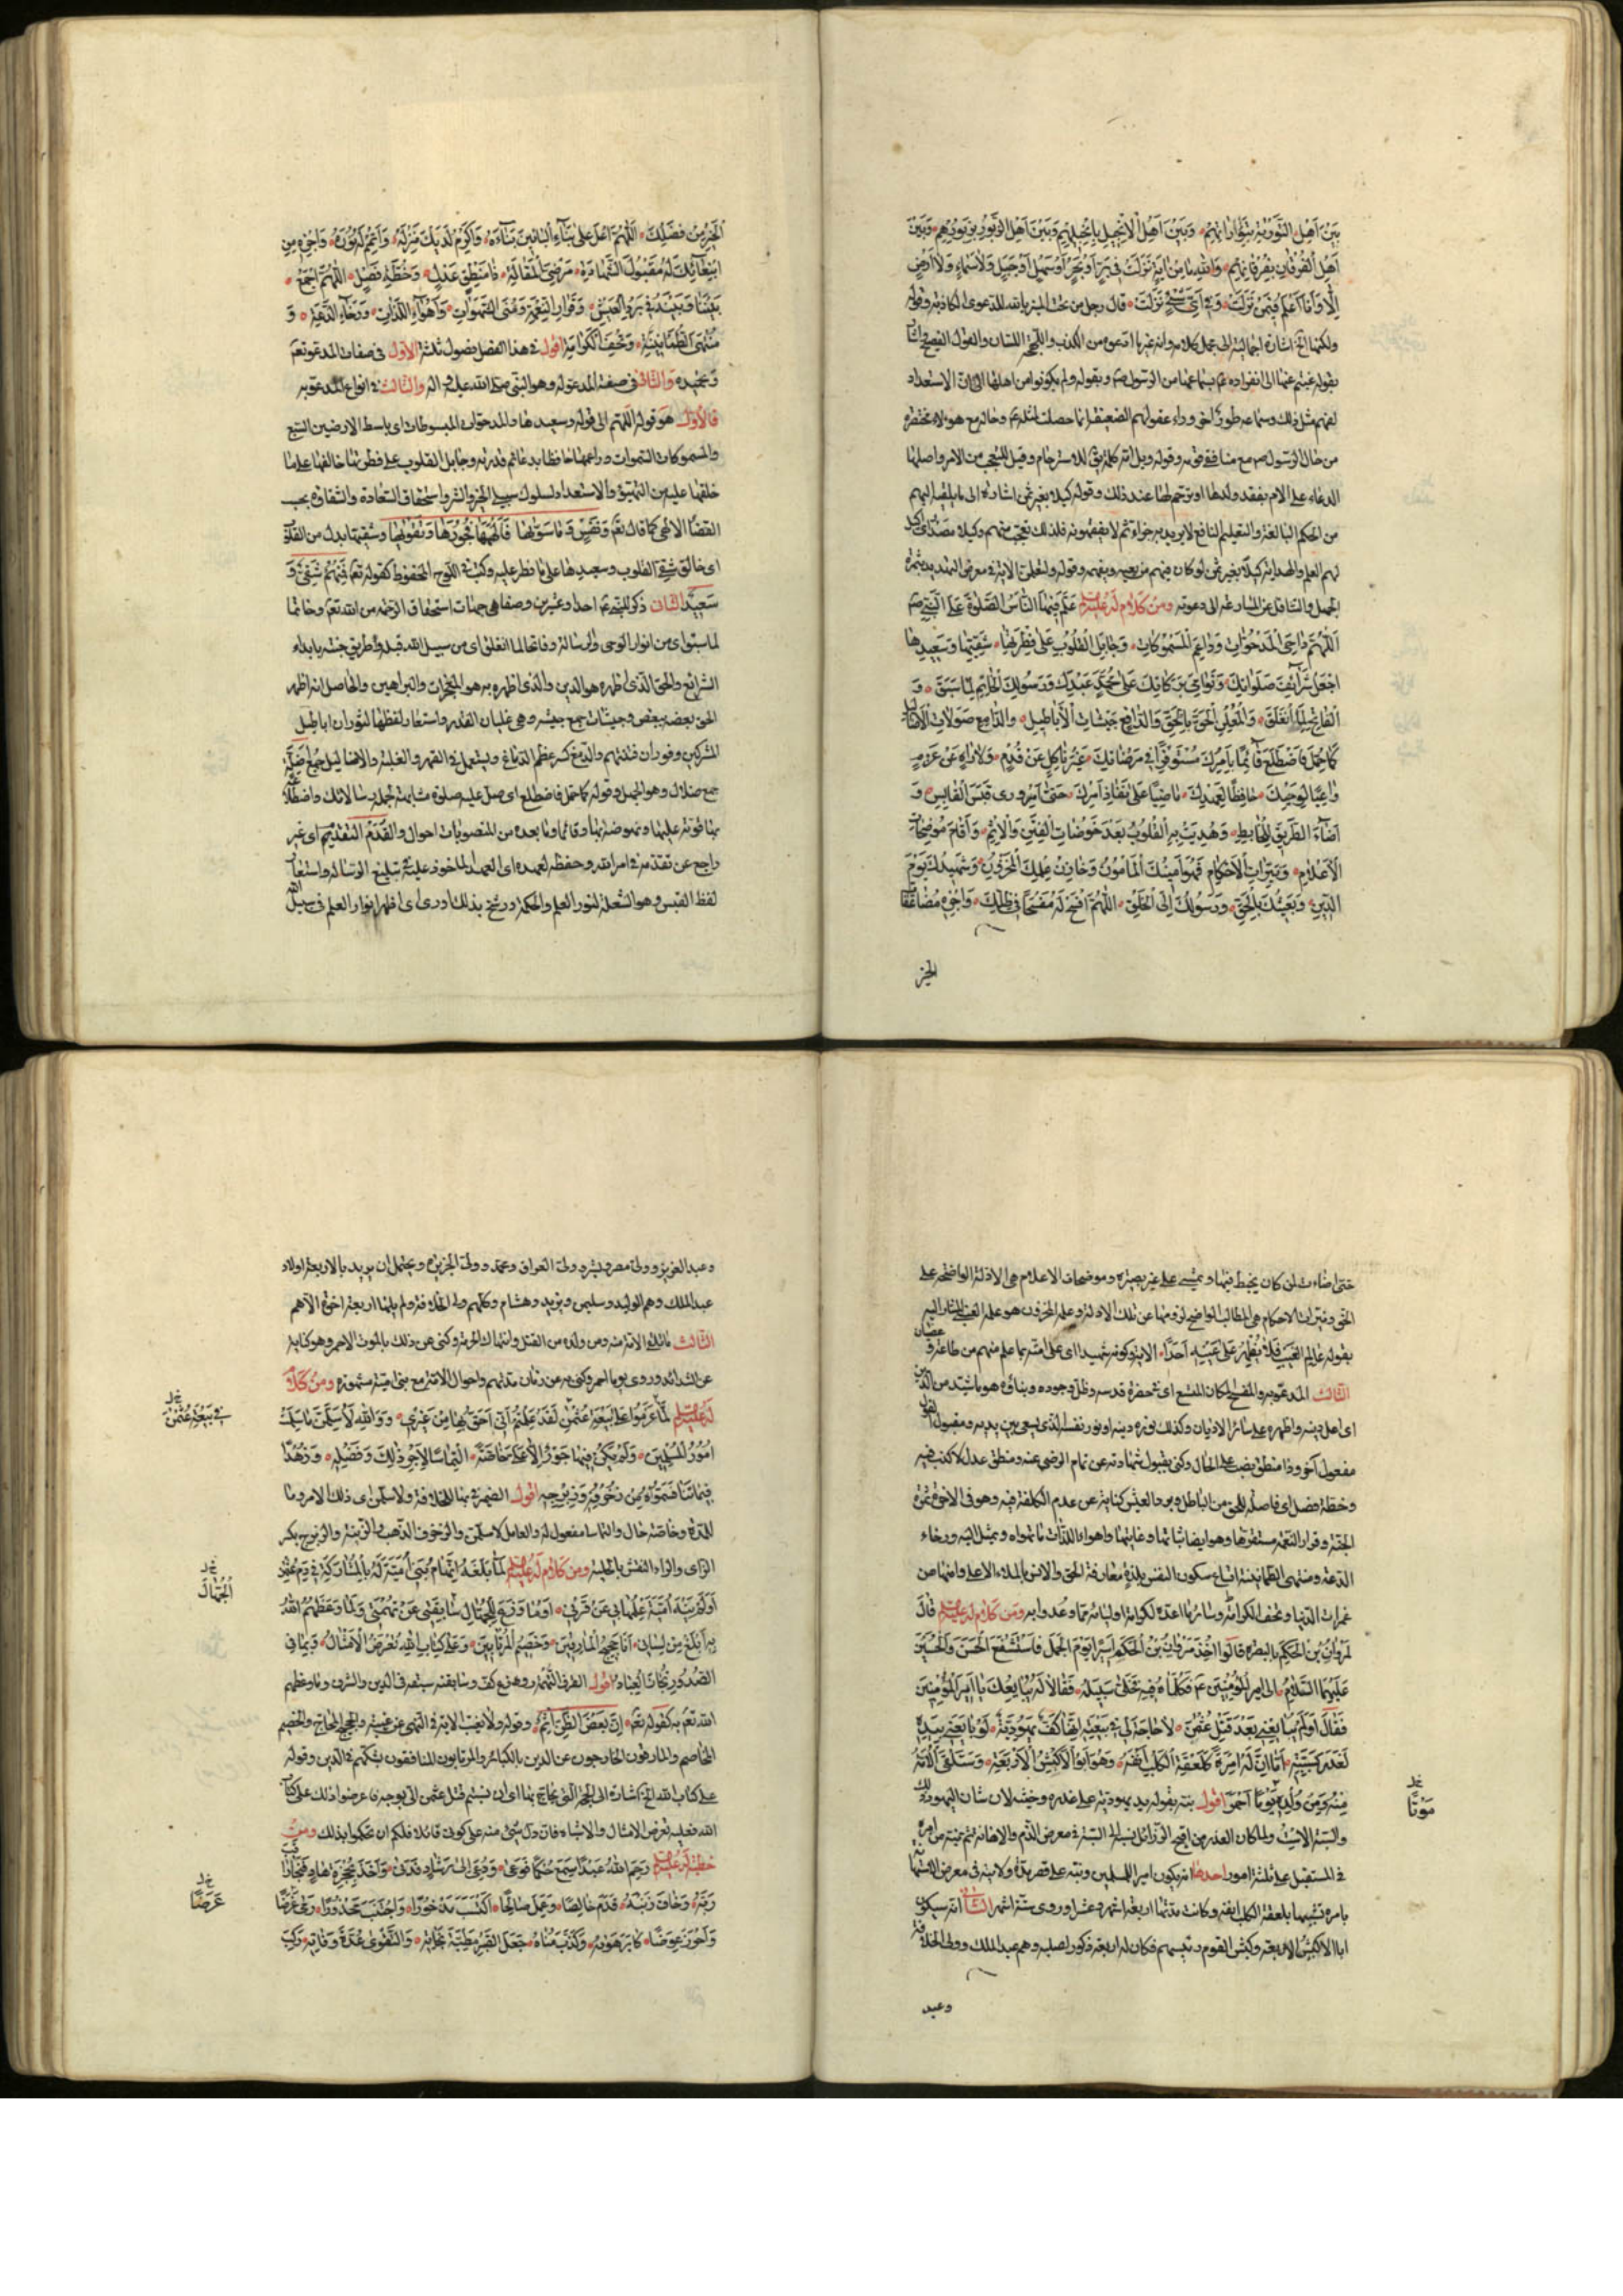 بَيْنَ أَهْلِ التَّوْرٰيةِ بِتَوْرٰاتِهِمْ وَبَيْنَ أَهْلِ الْإِنْجِيلِ بِإِنْجِيلِهِمْ وَبَيْنَ أَهْلِ الزَّبُورِ بِزَبُورِهِمْ وَبَيْنَ
أَهْلِ الْفُرْقٰانِ بِفُرْقٰانِهِمْ وَاللهِ مٰا مِنْ اٰيَةٍ نَزَلَتْ فِي بَرٍّ أَوْ بَحْرٍ أَوْ سَهْلٍ أَوْ جَبَلٍ وَلٰا سَمٰاءٍ وَلٰا أَرْضٍ
إِلّٰا وَأَنَا أَعْلَمُ فِيمَنْ نَزَلَتْ وَفِي أَيِّ شَيْءٍ نَزَلَتْ قال رجل من تحت المنبر يا لله للدعوى الكاذبة وقوله
ولكنها لهجة اشارة اجمالية الى محل كلامه وانه غير ما ادعوه من الكذب واللهجة اللسان والقول الفصيح
بقوله غبتم عنها الى انفراده بسماعها من الرسول ص وبقوله ولم تكونوا من اهلها الى الاستعداد
لفهم مثل ذلك وسماعه طور اخر وراء عقولهم الضعيفة انما حصلت لمثله وحاله مع هؤلاء مختصرة
من حال الرسول ص مع منافقي قومه وقوله ويل امه كلمة للاسترحام وقيل للتعجب من الامر واصلها
الدعاء على الام بفقد ولدها او ترحم لها عند ذلك وقوله كيلا بغير ثمن اشارة الى ما يلقيه اليهم
من الحكم البالغة والتعليم النافع لا يريد به جزاء ثم لا يفقهونه فلذلك تعجب منهم وكيلا مصدر
لهم العلم والهداية كيلا بغير ثمن لو كان فيهم من يعيه ويفهمه وقوله ولتعلمن الاية في معرض التهديد بثمرة
الجهل والتثاقل عن المسارعة الى دعوته وَمِنْ كَلٰامٍ لَهُ عليه السلام عَلَّمَ فِيهٰا النّٰاسَ الصَّلٰوةَ عَلَى النَّبِيِّ ص
اَللّٰهُمَّ دٰاحِيَ الْمَدْحُوّٰاتِ وَدٰاعِمَ الْمَسْمُوكٰاتِ وَجٰابِلَ الْقُلُوبِ عَلٰى فِطْرَتِهٰا شَقِيِّهٰا وَسَعِيدِهٰا
اِجْعَلْ شَرٰائِفَ صَلَوٰاتِكَ وَنَوٰامِيَ بَرَكٰاتِكَ عَلٰى مُحَمَّدٍ عَبْدِكَ وَرَسُولِكَ الْخٰاتِمِ لِمٰا سَبَقَ وَ
الْفٰاتِحِ لِمَا انْغَلَقَ وَالْمُعْلِنِ الْحَقَّ بِالْحَقِّ وَالدّٰافِعِ جَيْشٰاتِ الْأَبٰاطِيلِ وَالدّٰامِغِ صَوْلٰاتِ الْأَضٰالِيلِ
كَمٰا حُمِّلَ فَاضْطَلَعَ قٰائِمًا بِأَمْرِكَ مُسْتَوْفِزًا فِي مَرْضٰاتِكَ غَيْرَ نٰاكِلٍ عَنْ قُدُمٍ وَلٰا وٰاهٍ عَنْ عَزْمٍ
وٰاعِيًا لِوَحْيِكَ حٰافِظًا لِعَهْدِكَ مٰاضِيًا عَلٰى نَفٰاذِ أَمْرِكَ حَتّٰى أَوْرٰى قَبَسَ الْقٰابِسِ وَ
أَضٰاءَ الطَّرِيقَ لِلْخٰابِطِ وَهُدِيَتْ بِهِ الْقُلُوبُ بَعْدَ خَوْضٰاتِ الْفِتَنِ وَالْإِثْمِ وَأَقٰامَ مُوضِحٰاتِ
الْأَعْلٰامِ وَنَيِّرٰاتِ الْأَحْكٰامِ فَهُوَ أَمِينُكَ الْمَأْمُونُ وَخٰازِنُ عِلْمِكَ الْمَخْزُونِ وَشَهِيدُكَ يَوْمَ
الدِّينِ وَبَعِيثُكَ بِالْحَقِّ وَرَسُولُكَ إِلَى الْخَلْقِ اَللّٰهُمَّ افْسَحْ لَهُ مُفْسَحًا فِي ظِلِّكَ وَاجْزِهِ مُضٰاعَفٰاتِ
الخير
الْخَيْرِ مِنْ فَضْلِكَ اَللّٰهُمَّ أَعْلِ عَلٰى بِنٰاءِ الْبٰانِينَ بِنٰاءَهُ وَأَكْرِمْ لَدَيْكَ مَنْزِلَهُ وَأَتْمِمْ لَهُ نُورَهُ وَاجْزِهِ مِنِ
ابْتِعٰاثِكَ لَهُ مَقْبُولَ الشَّهٰادَةِ مَرْضِيَّ الْمَقٰالَةِ ذٰا مَنْطِقٍ عَدْلٍ وَخُطَّةٍ فَصْلٍ اَللّٰهُمَّ اجْمَعْ
بَيْنَنٰا وَبَيْنَهُ فِي بَرْدِ الْعَيْشِ وَقَرٰارِ النِّعْمَةِ وَمُنَى الشَّهَوٰاتِ وَأَهْوٰاءِ اللَّذّٰاتِ وَرَخٰاءِ الدَّعَةِ وَ
مُنْتَهَى الطُّمَأْنِينَةِ وَتُحَفِ الْكَرٰامَةِ اقول في هذا الفصل فصول ثلثة الاول في صفات المدعو تعم
وتمجيده والثانى في صفة المدعو له وهو النبي صلى الله عليه واله والثالث في انواع المدعو به
فالاول هو قوله اللهم الى قوله وسعيدها والمدحوات المبسوطات اي باسط الارضين السبع
والمسموكات السموات وداعمها حافظها بدعائم قدرته وجابل القلوب على فطرتها خالقها على ما
خلقها عليه من التهيئ والاستعداد لسلوك سبيل الخير والشر واستحقاق السعادة والشقاوة بحسب
القضاء الالهي كما قال تعم وَنَفْسٍ وَمٰا سَوّٰيهٰا فَأَلْهَمَهٰا فُجُورَهٰا وَتَقْوٰيهٰا وشقيها بدل من القلوب
اي خالق شقي القلوب وسعيدها على ما فطر عليه وكتب في اللوح المحفوظ كقوله تعم فَمِنْهُمْ شَقِيٌّ وَ
سَعِيدٌ الثانى ذكر للنبي احدا وعشرين وصفا هي جهات استحقاق الرحمة من الله تعم وخاتما
لما سبق اي من انوار الوحي والرسالة وفاتحا لما انغلق اي من سبيل الله قبله وطريق جنته بابداء
الشرائع والحق الذي اظهره هو الدين والذي اظهره به هو المعجزات والبراهين والحاصل انه اظهر
الحق بعضه ببعض وجيشات جمع جيشة وهي غليان القدر واستعار لفظها لثوران اباطيل
المشركين وفوران فتنتهم والدمغ كسر عظم الدماغ ويستعمل في القهر والغلبة والاضاليل جمع ضلة
جمع ضلال وهو الجهل وقوله كما حمل فاضطلع اي صل عليه صلوة مشابهة لحمله رسالاتك واضطلاعه
بها قوته عليها ونهوضه بها وقائما وما بعده من المنصوبات احوال والقدم التقدم اي غير
راجع عن تقدمه في امر الله وحفظه لعهده اي العهد الماخوذ عليه في تبليغ الرسالة واستعار
لفظ القبس وهو الشعلة لنور العلم والحكمة ورشح بذلك اورى اي اظهر انوار العلم في سبيل الله
حتى اضاءت لمن كان يخبط فيها ويمشي على غير بصيرة وموضحات الاعلام هي الادلة الواضحة على
الحق ونيرات الاحكام هي المطالب الواضح لزومها عن تلك الادلة وعلمه المخزون هو علم الغيب المشار اليه
بقوله عٰالِمُ الْغَيْبِ فَلٰا يُظْهِرُ عَلٰى غَيْبِهِ أَحَدًا الاية وكونه شهيدا اي على امته بما علم منهم من طاعة وعصيان
الثالث المدعو به والمفسح المكان المتسع اي في حضرة قدسه وظل وجوده وبناؤه هو ما شيده من الدين
اي اعل دينه واظهره على سائر الاديان وكذلك نوره دينه او نور نفسه الذي يسعى بين يديه ومقبول القول
مفعول اخر وذا منطق نصب على الحال وكنى بقبول شهادته عن تمام الرضى عنه ومنطق عدل لا كذب فيه
وخطة فصل اي فاصلة للحق من الباطل وبرد العيش كناية عن عدم الكلفة فيه وهو في الاخرة ثمرة
الجنة وقرار النعمة مستقرها وهو ايضا شهاتها وغايتها واهواء اللذات ما تهواه وتميل اليه ورخاء
الدعة ومنتهى الطمانينة اتساع سكون النفس بلذة معارفة الحق والانس بالملاء الاعلى وامنها من
غمرات الدنيا وتحف الكرامة وسائر ما اعده لكرامة اوليائه مما وعدوا به ومن كلام له عليه السلام قٰالَ
لِمَرْوٰانَ بْنِ الْحَكَمِ بِالْبَصْرَةِ قٰالُوا أُخِذَ مَرْوٰانُ بْنُ الْحَكَمِ أَسِيرًا يَوْمَ الْجَمَلِ فَاسْتَشْفَعَ الْحَسَنَ وَالْحُسَيْنَ
عَلَيْهِمَا السَّلٰامُ إِلٰى أَمِيرِ الْمُؤْمِنِينَ فَكَلَّمٰاهُ فِيهِ فَخَلّٰى سَبِيلَهُ فَقٰالٰا لَهُ يُبٰايِعُكَ يٰا أَمِيرَ الْمُؤْمِنِينَ
فَقٰالَ أَوَلَمْ يُبٰايِعْنِي بَعْدَ قَتْلِ عُثْمٰنَ لٰا حٰاجَةَ لِي فِي بَيْعَتِهِ إِنَّهٰا كَفٌّ يَهُودِيَّةٌ لَوْ بٰايَعَنِي بِيَدِهِ
لَغَدَرَ بِسَبَّتِهِ أَمٰا إِنَّ لَهُ إِمْرَةً كَلَعْقَةِ الْكَلْبِ أَنْفَهُ وَهُوَ أَبُو الْأَكْبُشِ الْأَرْبَعَةِ وَسَتَلْقَى الْأُمَّةُ
مِنْهُ وَمِنْ وُلْدِهِ يَوْمًا أَحْمَرَ اقول نبه بقوله يد يهودية على غدره وخبثه لان شان اليهود ذلك
والسبة الاست ولما كان الغدر من اقبح الرذائل نسبه الى السبة في معرض الذم والاهانة ثم نبه من امره
في المستقبل على ثلثة امور احدها انه يكون امير المسلمين ونبه على قصر مدة ولايته في معرض الاستهانة
بامره تشبيهها بلعقة الكلب انفه وكانت مدتها اربعة اشهر وعشرا وروى ستة اشهر الثانى انه سيكون
ابا الاكبش الاربعة وكبش القوم رئيسهم فكان له اربعة ذكور لصلبه وهم عبد الملك وولي الخلافة
خ ل
مَوْتًا
وعبد
وعبد العزيز وولى مصر وبشر وولى العراق ومحمد وولى الجزيرة ويحتمل ان يريد بالاربعة اولاد
عبد الملك وهم الوليد وسليمن ويزيد وهشام وكلهم ولي الخلافة ولم يلها اربعة اخوة الا هم
الثالث ما تلقى الامة منه ومن ولده من القتل وانتهاك الحرمة وكنى عن ذلك بالموت الاحمر وهو كناية
عن الشدائد وروى يوما احمر وكنى به عن زمان مدتهم واحوال الامة مع بني امية مشهورة ومن كلام
له عليه السلام لَمّٰا عَزَمُوا عَلٰى بَيْعَةِ عُثْمٰنَ لَقَدْ عَلِمْتُمْ أَنِّي أَحَقُّ بِهٰا مِنْ غَيْرِي وَوَاللهِ لَأُسَلِّمَنَّ مٰا سَلِمَتْ
أُمُورُ الْمُسْلِمِينَ وَلَمْ يَكُنْ فِيهٰا جَوْرٌ إِلّٰا عَلَيَّ خٰاصَّةً اِلْتِمٰاسًا لِأَجْرِ ذٰلِكَ وَفَضْلِهِ وَزُهْدًا
فِيمٰا تَنٰافَسْتُمُوهُ مِنْ زُخْرُفِهِ وَزِبْرِجِهِ اقول الضمير في بها للخلافة ولاسلمن اي ذلك الامر وما
للمدة وخاصة حال والتماسا مفعول له والعامل لاسلمن والزخرف الذهب والزينة والزبرج بكسر
الزاى والراء النقش بالحلية ومن كلام له عليه السلام لَمّٰا بَلَغَهُ اتِّهٰامُ بَنِي أُمَيَّةَ لَهُ بِالْمُشٰارَكَةِ فِي دَمِ عُثْمٰنَ
أَوَلَمْ يَنْهَ أُمَيَّةَ عِلْمُهٰا بِي عَنْ قَرْفِي أَوَمٰا وَزَعَ الْجُهّٰالَ سٰابِقَتِي عَنْ تُهَمَتِي وَلَمٰا وَعَظَهُمُ اللهُ
بِهِ أَبْلَغُ مِنْ لِسٰانِي أَنَا حَجِيجُ الْمٰارِقِينَ وَخَصِيمُ الْمُرْتٰابِينَ وَعَلٰى كِتٰابِ اللهِ تُعْرَضُ الْأَمْثٰالُ وَبِمٰا فِي
الصُّدُورِ تُجٰازَى الْعِبٰادُ اقول القرف التهمة ووزع كف وسابقته سبقه في الدين والشرف وما وعظهم
الله تعم به كقوله تعم إِنَّ بَعْضَ الظَّنِّ إِثْمٌ وقوله ولا يغتب الاية في النهى عن غيبته والحجيج المحاج والخصيم
المخاصم والمارقون الخارجون عن الدين بالكبائر والمرتابون للمنافقون بشكهم في الدين وقوله
على كتاب الله الخ اشارة الى الحجة التي يحاج بها اي ان نسبتم قتل عثمن الي بوجه فاعرضوا ذلك على كتاب
الله فعليه تعرض الامثال والاشباه فان دل شئ منه على كوني قاتلا فلكم ان تحكموا بذلك ومن
خطبة له عليه السلام رَحِمَ اللهُ عَبْدًا سَمِعَ حُكْمًا فَوَعٰى وَدُعِيَ إِلٰى رَشٰادٍ فَدَنٰى وَأَخَذَ بِحُجْزَةِ هٰادٍ فَنَجٰا رٰاقَبَ
رَبَّهُ وَخٰافَ ذَنْبَهُ قَدَّمَ خٰالِصًا وَعَمِلَ صٰالِحًا اِكْتَسَبَ مَذْخُورًا وَاجْتَنَبَ مَحْذُورًا رَمٰى غَرَضًا
وَأَحْرَزَ عِوَضًا كٰابَرَ هَوٰيهُ وَكَذَّبَ مُنٰاهُ جَعَلَ الصَّبْرَ مَطِيَّةَ نَجٰاتِهِ وَالتَّقْوٰى عُدَّةَ وَفٰاتِهِ رَكِبَ
خ ل
فِي بَيْعَةِ عُثْمٰنَ
خ ل
الْجُهّٰالَ
خ ل
عَرَضًا